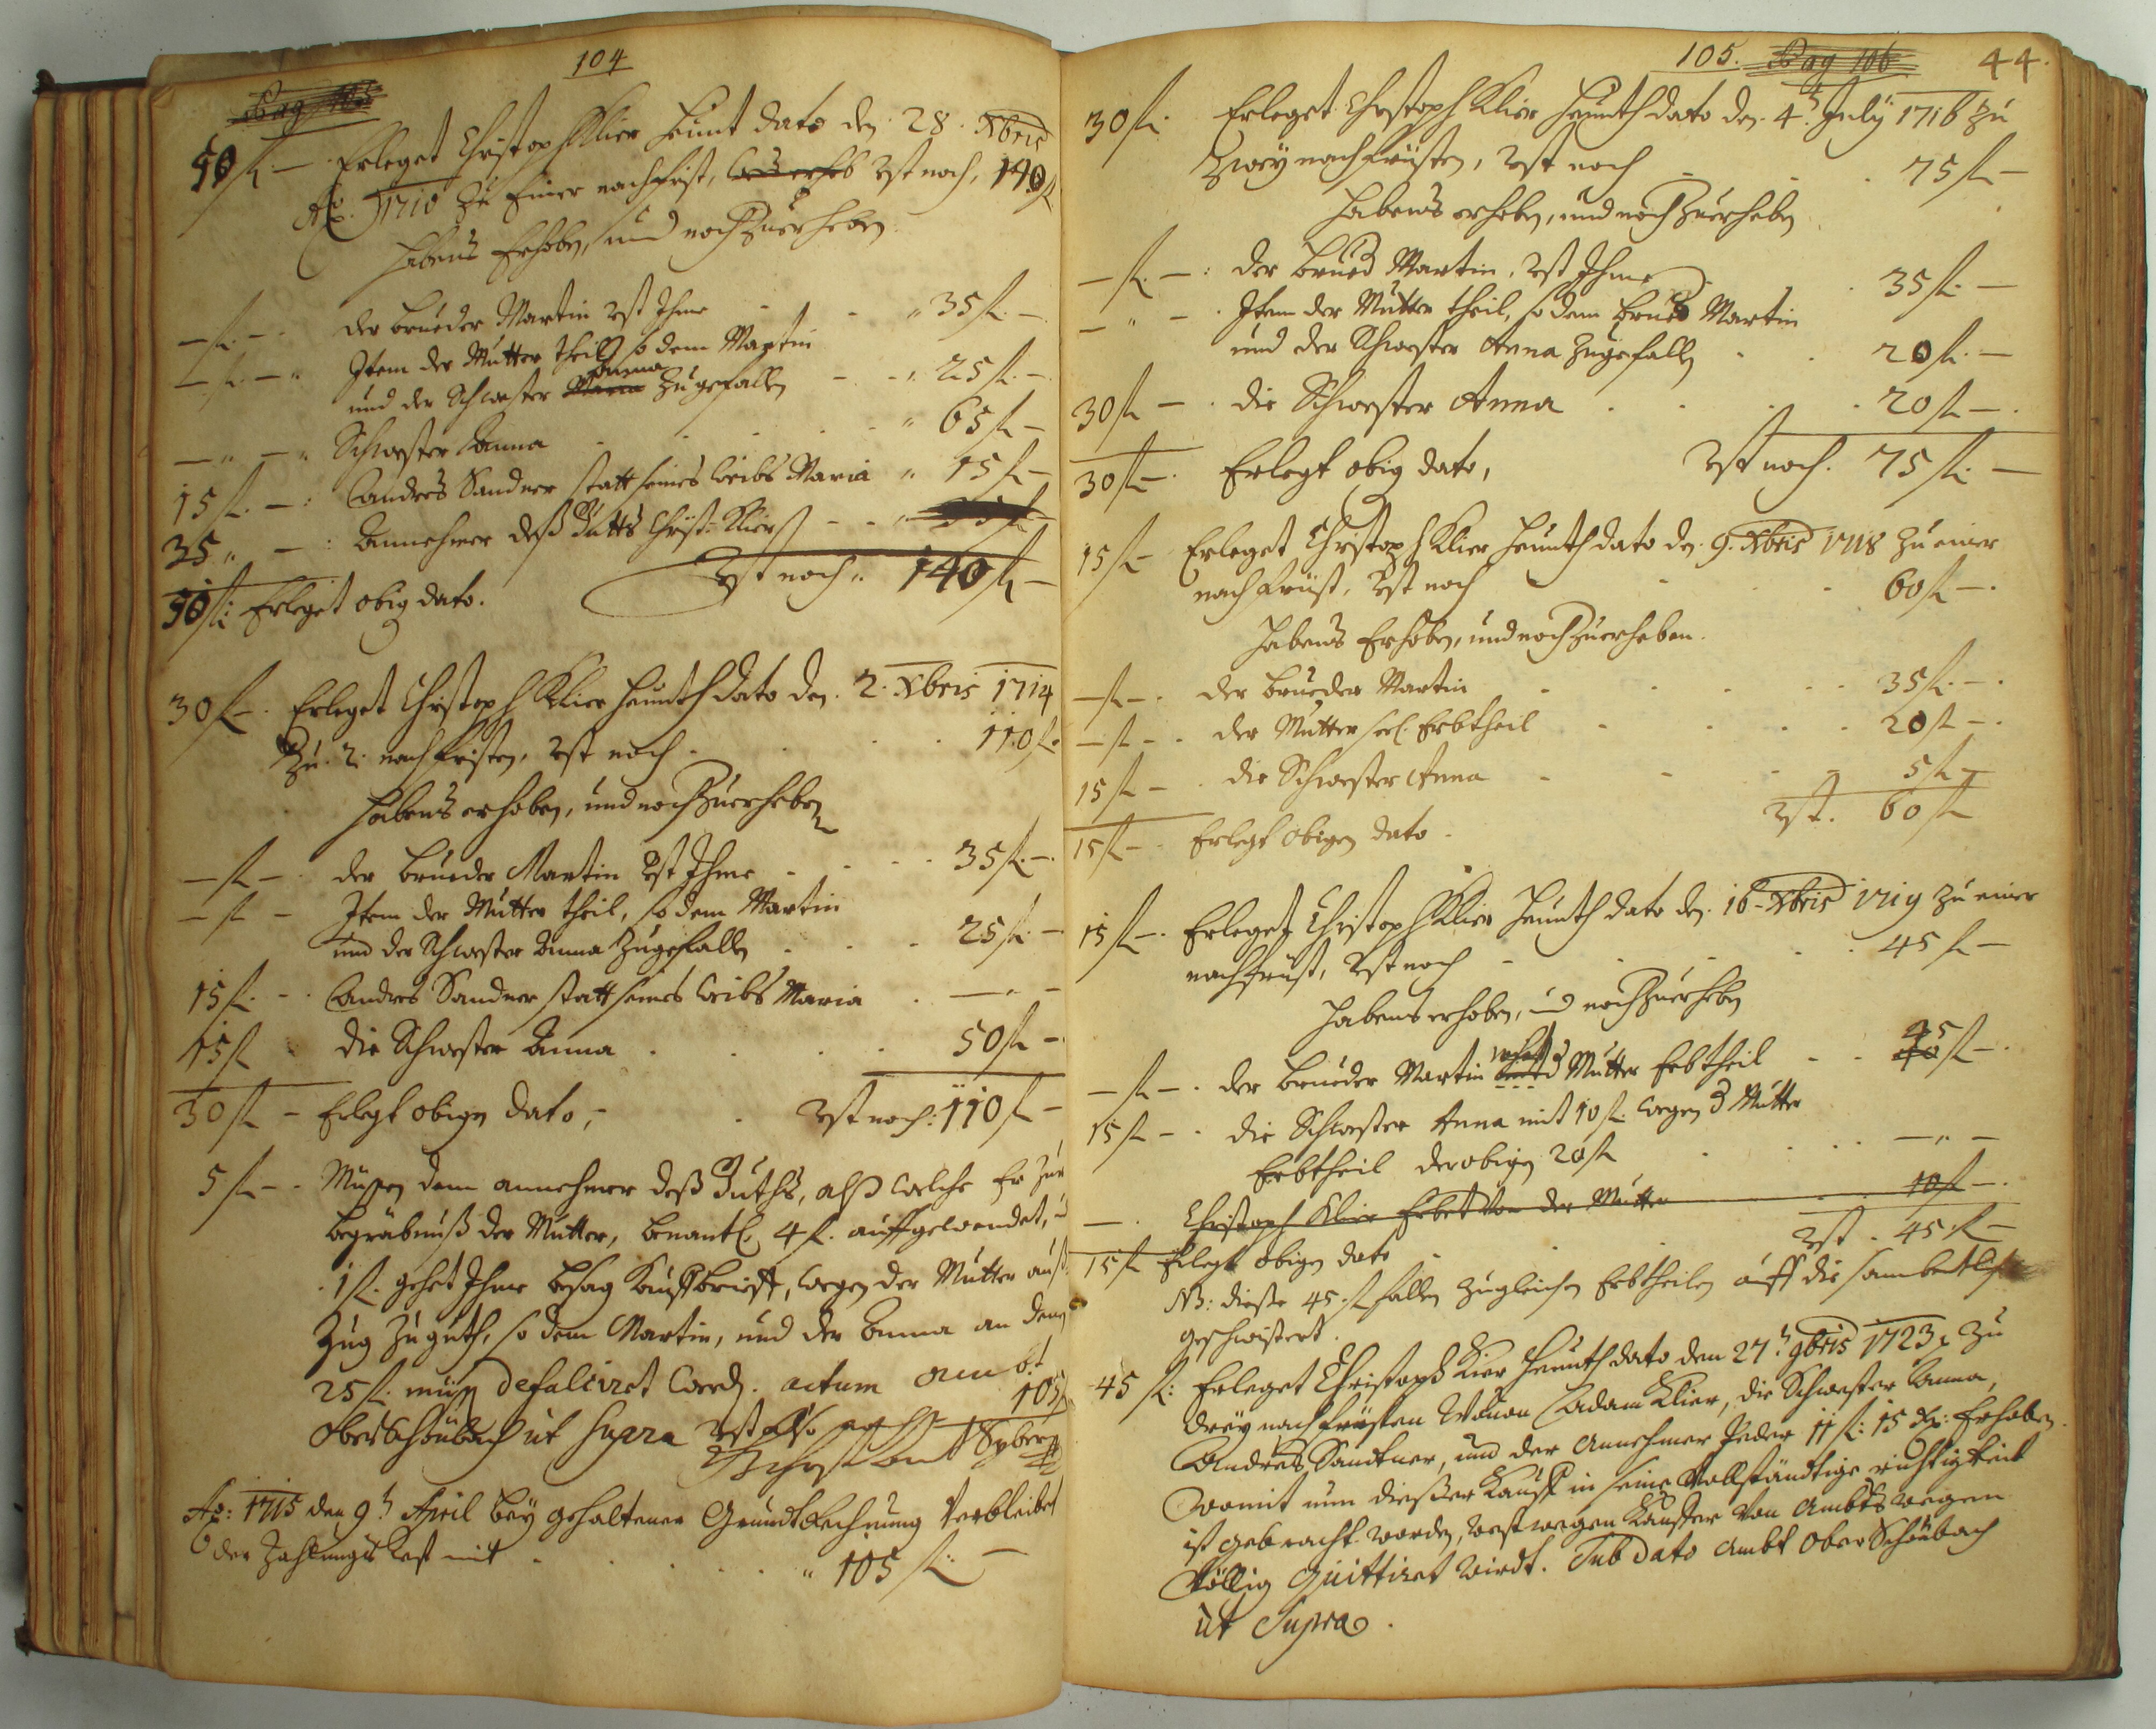 104
Pag 105
50 fl. — Erleget Christoph Klier heunt dato den 28. Xbris
Ao. 1710 Zu Einer nachfrist, Rest noch, 140 fl
habens Erhoben, und noch Zuerheben
— fl. — der brueder Martin Rest Ihme " 35 fl. —
— fl. — " Item der Mutter theil so dem Martin
und der Schwester Maria Anna Zugefallen " 25 fl. —
— " — " Schwester Anna " 65 fl —
15 fl. — : Andres Sandner statt seines Weibs Maria " 15 fl —
35 " — : Annehmer deß Gutts Christ: Klier
Rest noch " 140 fl —
50 fl: Erleget obig dato.
30 fl —. Erleget Christoph Klier heunth dato den. 2. Xbris 1714
Zu. 2. nachfristen, Rest noch . 110 fl.
habens erhoben, und noch Zuerheben
— fl — . der brueder Martin Rest Ihme - 35 fl. —.
— fl — Item der Mutter theil, so dem Martin
und der Schwester Anna Zugefallen . 25 fl. —
15 fl. - . Andres Sandner statt seines Weibs Maria . — " —
15 fl - die Schwester Anna . 50 fl —
30 fl — Erlegt obigen dato, - Rest noch: 110 fl —
5 fl — . Müssen dem annehmer deß Guths, alß welche Er Zur
begräbnuß der Mutter, benantl. 4 fl. auffgewendet, u
1 fl. gehet Ihme besag Kauffbrieff, wegen der Mutter auß
Zug Zu guth, so dem Martin, und der Anna an denen
25 fl. müssen defalciret werden. actum Ambt
Ober Schönbach ut Supra Rest also noch 105 fl
Ao: 1715 den 9t. April bey gehaltener Grundt Rechnung Verbleibet
der Zahlungs Rest mit . " 105 fl: —
105. Pag 106 44.
30 fl. Erleget Christoph Klier heunth dato den. 4t. July 1716 Zu
Zwey nachfristen, Rest noch . 75 fl —
habens erhoben, und noch Zuerheben
— fl. — : der brued Martin, Rest Ihme . 35 fl. —
— " — . Item der Mutter theil, so dem brued Martin
und der Schwester Anna Zugefallen . 20 fl. —
30 fl — . die Schwester Anna . 20 fl —.
30 fl —. Erlegt obig dato, Rest noch. 75 fl. —
15 fl — Erleget Christoph Klier heunth dato den. 9. Xbris 1718 Zu einer
nachfrist, Rest noch . 60 fl —.
habens Erhoben, und noch Zuerheben.
— fl — . der brueder Martin . 35 fl. —.
— fl — . der Mutter sel. Erbtheil . 20 fl —.
15 fl — . die Schwester Anna . 5 fl —
Rst. 60 fl
15 fl — . Erlegt obigen dato .
15 fl —. Erleget Christoph Klier heunth dato den. 16. Xbris 1719 Zu einer
nachfrist, Rest noch . 45 fl —
habens erhoben, und noch Zuerheben
— fl — . der brueder Martin Mutter Erbtheil . 45 fl —.
15 fl — . die Schwester Anna mit 10 fl. wegen d Mutter
Erbtheil der obigen 20 fl . — " —
— . Christoph Klier Erbet von der Mutter . 10 fl —.
Rst . 45 fl —
15 fl Erlegt obigen dato .
NB: diesse 45. fl fallen Zu gleichen Erbtheilen auff die sambentliche
geschwistert.
45 fl: Erleget Christoph Klier heunth dato den 27t. 9bris 1723, Zu
drey nachfristen Wouon Adam Klier, die Schwester Anna,
Andres Sandtner, und der Annehmer Jeder 11 fl: 15 xr: Erhoben.
Womit nun diesser Kauff in seine Vollständtige richtigkeit
ist gebracht worden, weßtwegen Kauffer Von Ambtswegen
Völlig quittiret wirdt. Sub dato Ambt Ober Schönbach
ut Supra.